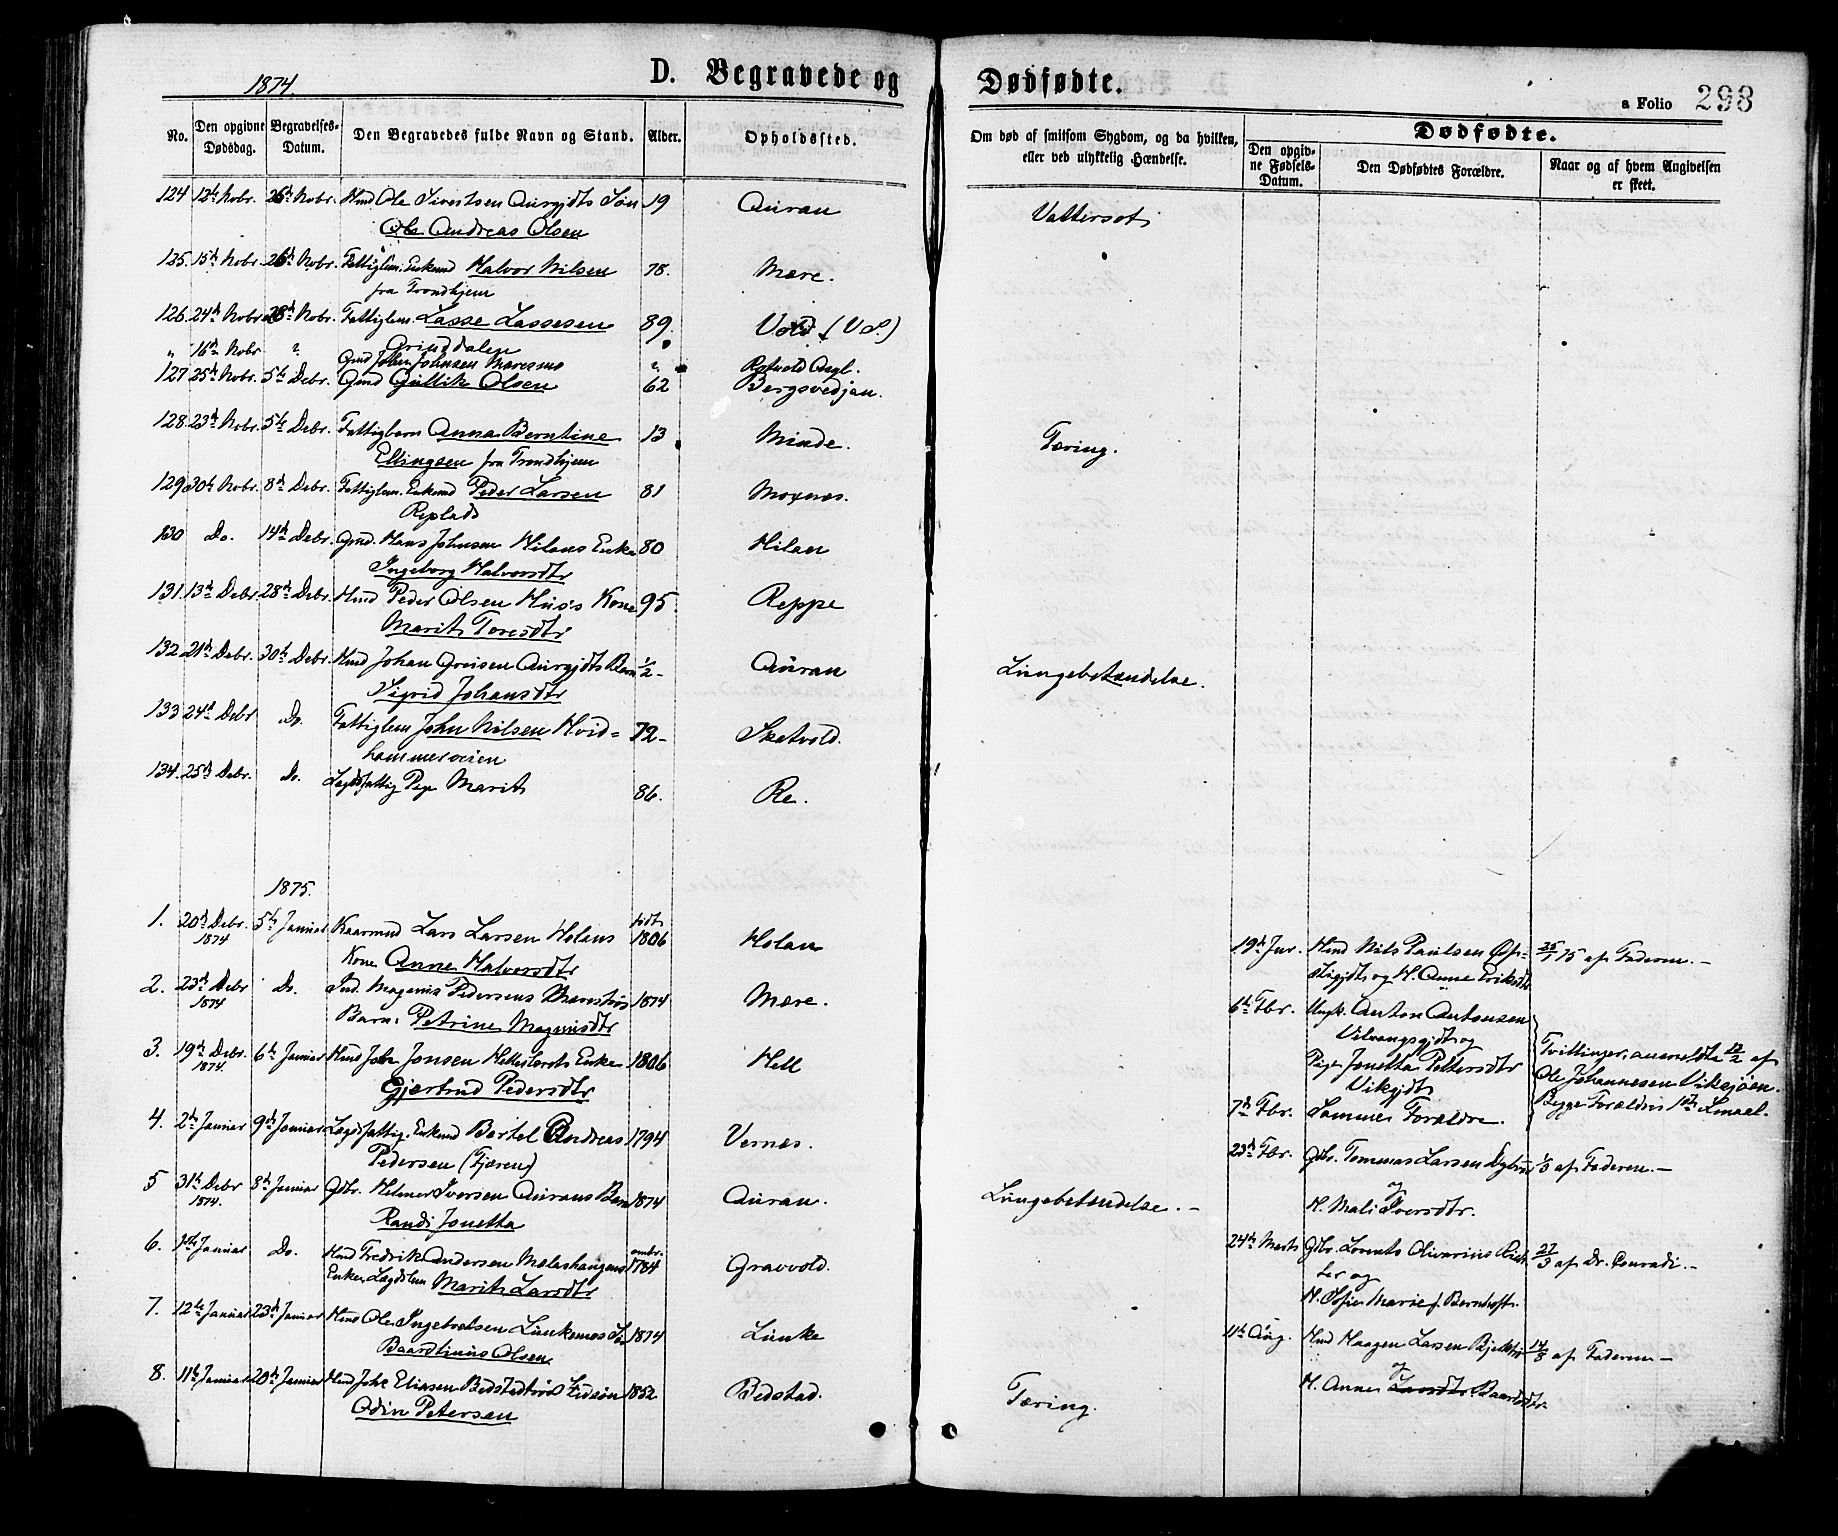 1874
D. Begravede og Dødfødte.
a Folio 298
No.
Den opgivne Dødsdag.
Begravelses-Datum.
Den Begravedes fulde Navn og Stand.
Alder.
Opholdssted.
Om død af smitsom Sygdom, og da hvilken, eller ved ulykkelig Hændelse.
Dødfødte.
Den opgivne Fødsels-Datum.
Den Dødfødtes Forældre.
Naar og af hvem Angivelsen er skeet.
124 12te Nobr. 26de Nobr. Hmd Ole Sivertsen Aurgjdts Søn 19 Auran Vattersot
Ole Andreas Olsen
125. 15de Nobr. 26de Nobr. Fattiglem. Enkmd Halvor Nilsen 78. Mære.
fra Trondhjem
126. 24de Nobr 28de Nobr. Fattiglem. Lasse Lassesen 89. Vold (V.S.)
Grinddalen
" 16de Nobr " Gmd John Johnsen Maresmo " Rotvold Asyl.
127 25de Nobr. 5te Debr. Gmd Gullik Olsen 62 Bergsvedjan.
128. 23de Nobr. 5te Debr. Fattigbarn Anna Berntine 13 Minde. Tæring.
Ellingsen fra Trondhjem
129. 30te Nobr. 8de Debr. Fattiglem. Enkmd Peder Larsen 81 Moxnæs.
Replads
130 Do. 14de Debr. Gmd. Hans Johnsen Hilans Enke 80 Hilan
Ingeborg Halvorsdtr
131. 13de Debr. 28de Debr. Hmd Peder Olsen Hus's Kone 95. Reppe
Marit Toresdtr
132. 21de Debr. 30te Debr. Hmd Johan Greisen Aurgjdts Barn 1/2 - Auran Lungebetændelse.
Sigrid Johansdtr
133 24de Debr Do. Fattiglem John Nilsen Hvid= 72- Sketvold.
hammerveien
134. 25de Debr. Do. Lægdsfattig Pige Marit 86. Re.
1875.
1. 20de Debr. 1874 5te Januar Kaarmnd Lars Larsen Holans født 1806 Holan
Kone Anne Halvorsdtr
19de Jnr. Hmd Nils Paulsen Øfs= 25/1 75 af Faderen. -
stigjdt og H. Anne Eriksdtr
2. 23de Debr 1874 Do. Ind. Magnus Pedersens Mæreshøi 1874 Mære.
Barn. Petrine Magnusdtr
6te Fbr. Ungk. Anton Antonsen
Vilvangsgjdt og
Pige Jonetta Pettersdtr
Vikgjdt
Tvillinger, anmeldte 12/2 af
Ole Johannesen Viksjøen.
Begge Forældres 1ste Lmaal.
3. 19de Debr. 1874. 6te Januar Hmd John Jonsen Hellesbrots Enke 1806 Hell
Gjertrud Pedersdtr
7de Fbr. Samme Forældre.
4. 2den Januar 9de Januar Lægdsfattig. Enkmd Bertel Andreas 1794 Vernæs.
Pedersen (Tjæren)
23de Fbr. Gbr. Tommas Larsen Dybvad 1/3 af Faderen. -
og
H. Mali Iversdtr.
5 31te Debr 1874. 8de Januar Gbr. Helmer Iversen Aurans Barn 1874 Auran. Lungebetændelse. -
Randi Jonetta
6. 1ste Januar Do. Hmd Fredrik Andersen Mælashaugens ombr. 1784 Gravvold.
Enke, Lægdslem Marit Larsdtr
24de Marts Gbr. Lorents Olivarius Rich= 27/3 af Dr. Conradi. -
ter og
H. Sofie Marie f. Bernhoft.
7. 12te Januar 23de Januar Hmd Ole Ingebretsen Lunkemos Søn 1874 Lunke
Baardtinus Olsen
11te Aug. Hmd Haagen Larsen Bjelbu 14/8 af Faderen -
og
H. Anne Larsdtr Baardsdtr.
8. 11te Januar 20de Januar Hmd John Eliasen Bedstadtrøs Stedsøn 1852 Bedstad. Tæring.
Odin Petersen